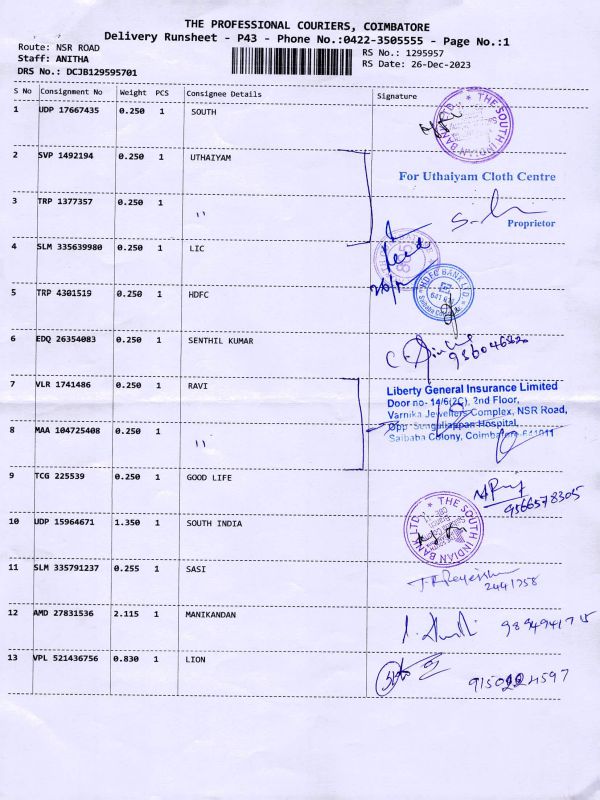 THE PROFESSIONAL COURIERS, COIMBATORE
Delivery Runsheet - P43 - Phone No.:0422-3505555 - Page No.:1
Route: NSR ROAD
Staff: ANITHA
DRS No.: DCJB129595701
RS No.: 1295957
RS Date: 26-Dec-2023
S No Consignment No Weight PCS Consignee Details Signature
1 UDP 17667435 0.250 1 SOUTH
THE SOUTH INDIAN BANK LTD.
2 SVP 1492194 0.250 1 UTHAIYAM
For Uthaiyam Cloth Centre
3 TRP 1377357 0.250 1 "
Proprietor
4 SLM 335639980 0.250 1 LIC
5 TRP 4301519 0.250 1 HDFC
HDFC BANK LTD.
6 EDQ 26354083 0.250 1 SENTHIL KUMAR
7 VLR 1741486 0.250 1 RAVI
Liberty General Insurance Limited
Door no- 14/6(2C), 2nd Floor,
Varnika Jewellers Complex, NSR Road,
Opp. Sengaliappan Hospital,
Saibaba Colony, Coimbatore-641011
8 MAA 104725408 0.250 1 "
9 TCG 225539 0.250 1 GOOD LIFE
9566578305
10 UDP 15964671 1.350 1 SOUTH INDIA
THE SOUTH INDIAN BANK LTD.
11 SLM 335791237 0.255 1 SASI
2441758
12 AMD 27831536 2.115 1 MANIKANDAN
9894941715
13 VPL 521436756 0.830 1 LION